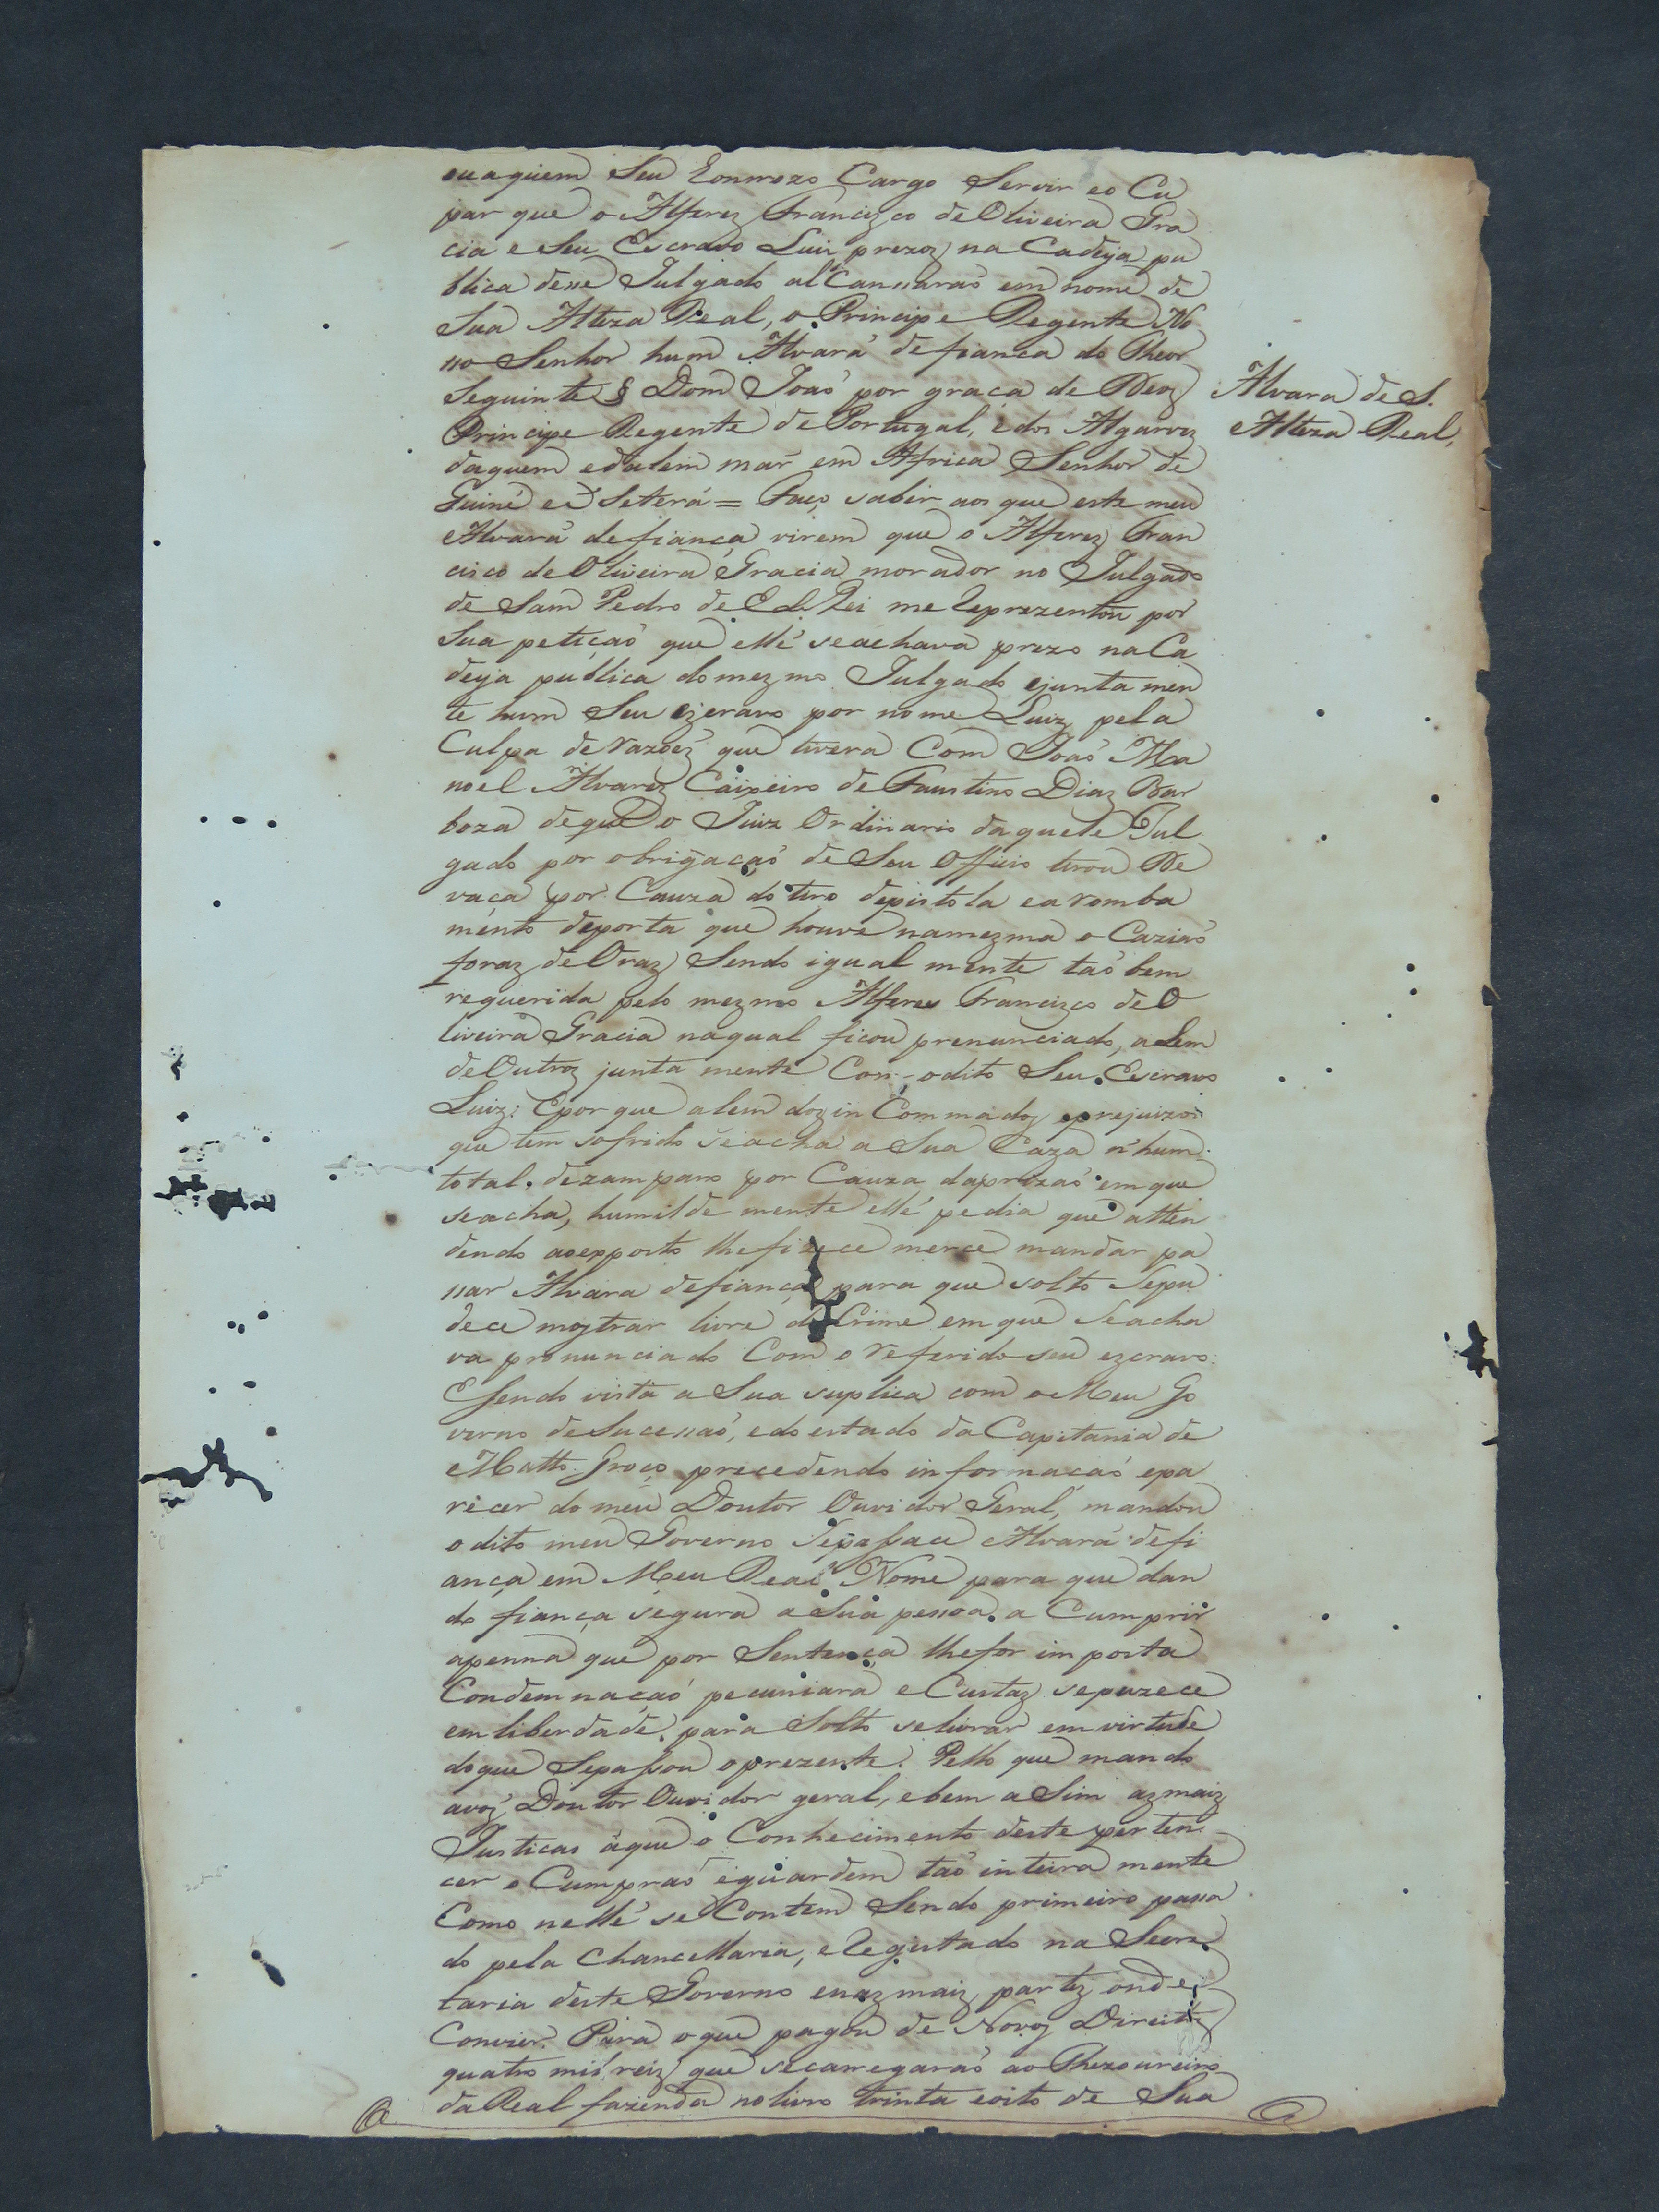 ou a quem Seu Eonrrozo Cargo Servir eo Cu
par que o Alferez Francizco de Oliveira Gra
cia e Seu Escravo Luiz prezoz na Cadeya pu
blica desse Julgado alcansaraõ em nome de
Sua Alteza Real, o Principe Regente No
sso Senhor hum Alvará de fianca do Theor
Seguinte § Dom Joaõ por graça de Deoz
Principe Regente de Portugal, e dos Algarvez
daquem e dalem mar em Africa Senhor de
Guiné e Setera = Faço saber aos que este meu
Alvará de fiança virem que o Alferez Fran
cisco de Oliveira Gracia morador no Julgado
de Sam Pedro de El Rei me Reprezentou por
Sua petiçaõ que elle se achava prezo na Ca
deya publica do mezmo Julgado e junta men
te hum Seu ezcravo por nome Luiz pela
Culpa de razoéz que tivera Com Joaõ Ma
noel Alvarez Caixeiro de Faustino Diaz Bar
boza de que o Juiz Ordinario daquele Jul
gado por obrigaçaõ de Seu Officio tirou De
vaça por Cauza do tiro de pistola e arromba
mento de porta que houve na mezma o Caziaõ
foraz de Oraz Sendo igual mente taõ bem
requerida pelo mezmo Alferes Francizco de O
liveira Gracia na qual ficou prenunciado, a Lem
de Outroz junta mente Com o dito Seu Escravo
Luiz: E por que a lem doz in Commodoz e prejuizos
que tem sofrido se acha a Sua Caza n'hum
total dezamparo por Cauza da prizaõ em que
se acha, humilde mente elle pedia que atten
dendo ao exposto lhe fizece merce mandar pa
ssar Alvara de fiança para que solto Se pu
dece moztrar livre do Crime em que Se acha
va pronunciado Com o referido seu ezcravo
E sendo vista a Sua suplica com o Meu Go
verno de Sucessaõ, e do estado da Capitania de
Matto Groço precedendo informaçaõ e pa
recer do meu Doutor Ouvidor Geral, mandou
o dito meu Governo Se passace Alvará de fi
ança em Meu Real Nome para que dan
do fiança segura a Sua pessoa a Cumprir
a penna que por Sentença lhe for imposta
Condemnaçaõ pecuniara e Custaz se puzece
em liberdade para Solto se livrar em virtude
do que Se passou o prezente. Pello que mando
a voz Doutor Ouvidor geral, e bem a Sim az maiz
Justicas á que o Conhecimento deste perten
cer o Cumpraõ e guardem taõ inteira mente
Como nelle se Contem Sendo primeiro passa
do pela Chancellaria, e Regestado na Secre
taria deste Governo e naz maiz partez onde
Convier. Para o que pagou de Novoz Direitoz
quatro mil reiz que se carregaraõ ao Thezoureiro
da Real fazenda no livro trinta e oito de Sua
Alvara de S.
Alteza Real,